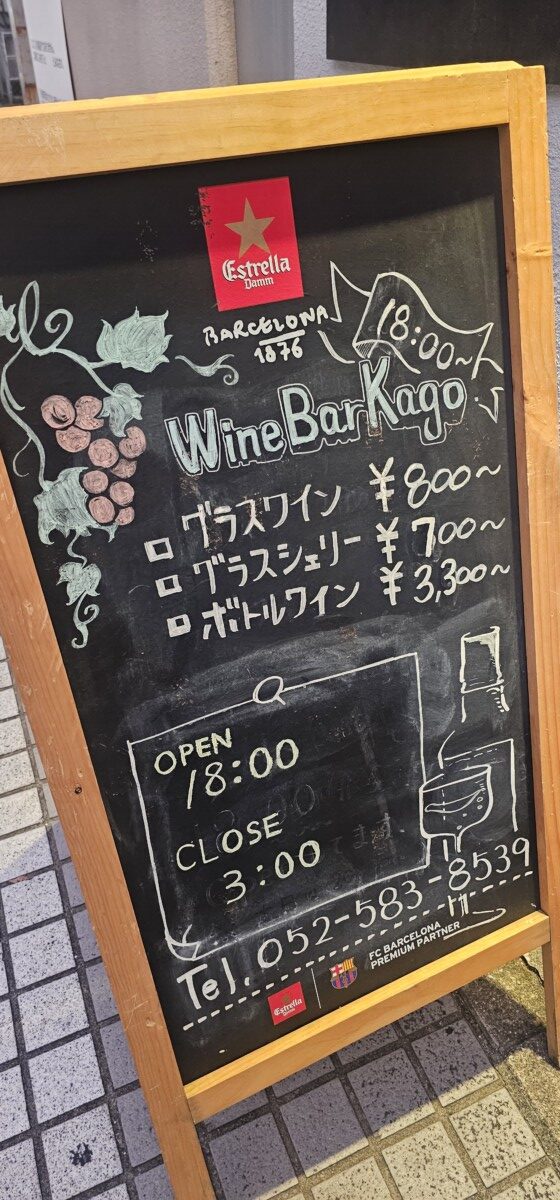 Estrella
Damm
BARCELONA
1876
18:00~
Wine Bar Kago
□ グラスワイン ¥800~
□ グラスシェリー ¥700~
□ ボトルワイン ¥3,300~
OPEN
18:00
CLOSE
3:00
Tel. 052-583-8539
Estrella
Damm
FC BARCELONA
PREMIUM PARTNER